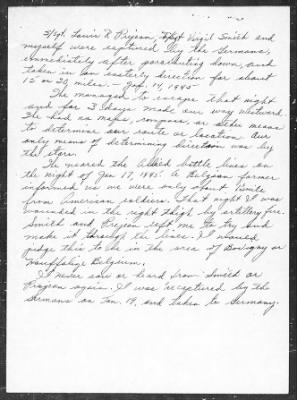 S/Sgt. Lewis R Prejean, T/Sgt Virgil Smith and
myself were captured by the Germans,
immediately after parachuting down, and
taken in an easterly direction for about
12 or 20 miles. - Jan. 14, 1945
We managed to escape that night
and for 3 days made our way Westward.
We had no maps, compass, or other means
to determine our route or location. Our
only means of determining direction was by
the stars.
We neared the Allied battle lines on
the night of Jan 17, 1945. A Belgian farmer
informed us we were only about 1 mile
from American soldiers. That night I was
wounded in the right thigh by artillery fire.
Smith and Prejean left me to try and
make it through the lines. I would
judge this to be in the area of or
Houffalize Belgium.
I never saw or heard from Smith or
Prejean again. I was recaptured by the
Germans on Jan. 19, and taken to Germany.